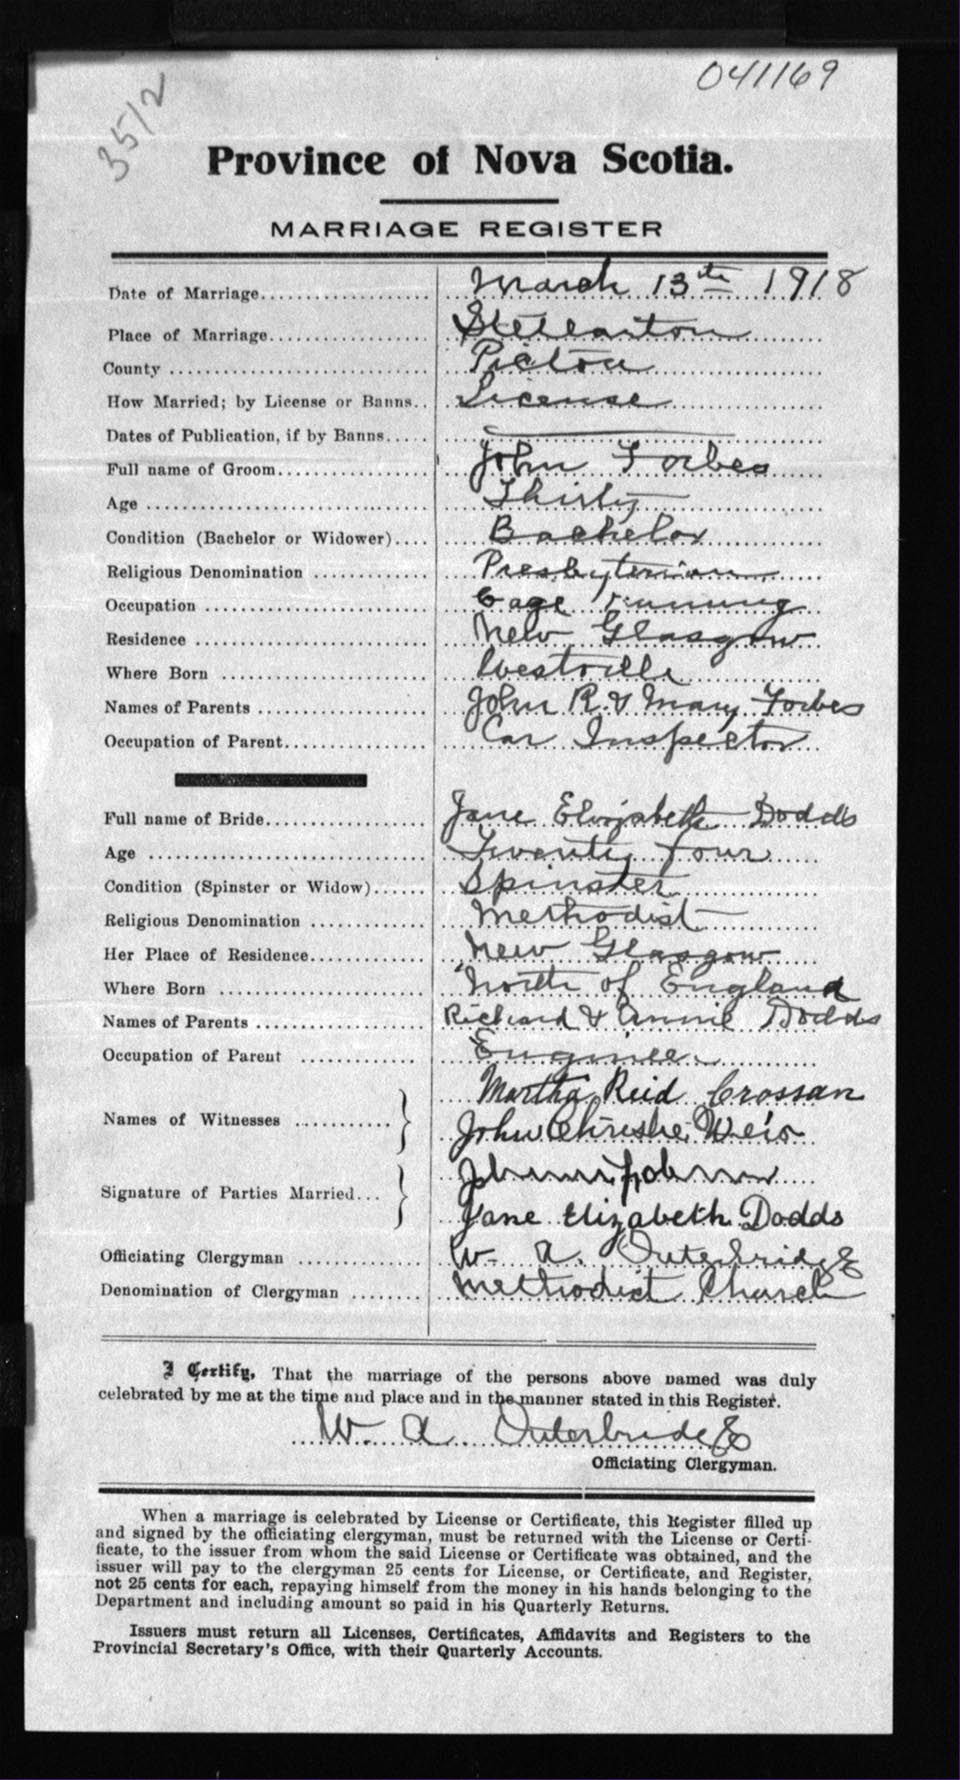 041169
35/2
Province of Nova Scotia.
MARRIAGE REGISTER
Date of Marriage.................... March 13th 1918
Place of Marriage.................. Stellarton
County ............................ Pictou
How Married; by License or Banns.. License
Dates of Publication, if by Banns.....
Full name of Groom.................. John Forbes
Age ............................... Thirty
Condition (Bachelor or Widower).... Bachelor
Religious Denomination ............. Presbyterian
Occupation ......................... Cage running
Residence .......................... New Glasgow
Where Born ........................ Westville
Names of Parents ................... John R. & Mary Forbes
Occupation of Parent................ Car Inspector
Full name of Bride.................. Jane Elizabeth Dodds
Age ............................... Twenty four
Condition (Spinster or Widow)...... Spinster
Religious Denomination ............. Methodist
Her Place of Residence............. New Glasgow
Where Born ........................ North of England
Names of Parents ................... Richard & Annie Dodds
Occupation of Parent ............. Engineer
Martha Reid Crossan
Names of Witnesses ............ John Weir
Signature of Parties Married...
Jane Elizabeth Dodds
Officiating Clergyman ............. W. A. Outerbridge
Denomination of Clergyman ........ Methodist Church
I Certify, That the marriage of the persons above named was duly
celebrated by me at the time and place and in the manner stated in this Register.
W. A. Outerbridge
Officiating Clergyman.
When a marriage is celebrated by License or Certificate, this Register filled up
and signed by the officiating clergyman, must be returned with the License or Certi-
ficate, to the issuer from whom the said License or Certificate was obtained, and the
issuer will pay to the clergyman 25 cents for License, or Certificate, and Register,
not 25 cents for each, repaying himself from the money in his hands belonging to the
Department and including amount so paid in his Quarterly Returns.
Issuers must return all Licenses, Certificates, Affidavits and Registers to the
Provincial Secretary's Office, with their Quarterly Accounts.